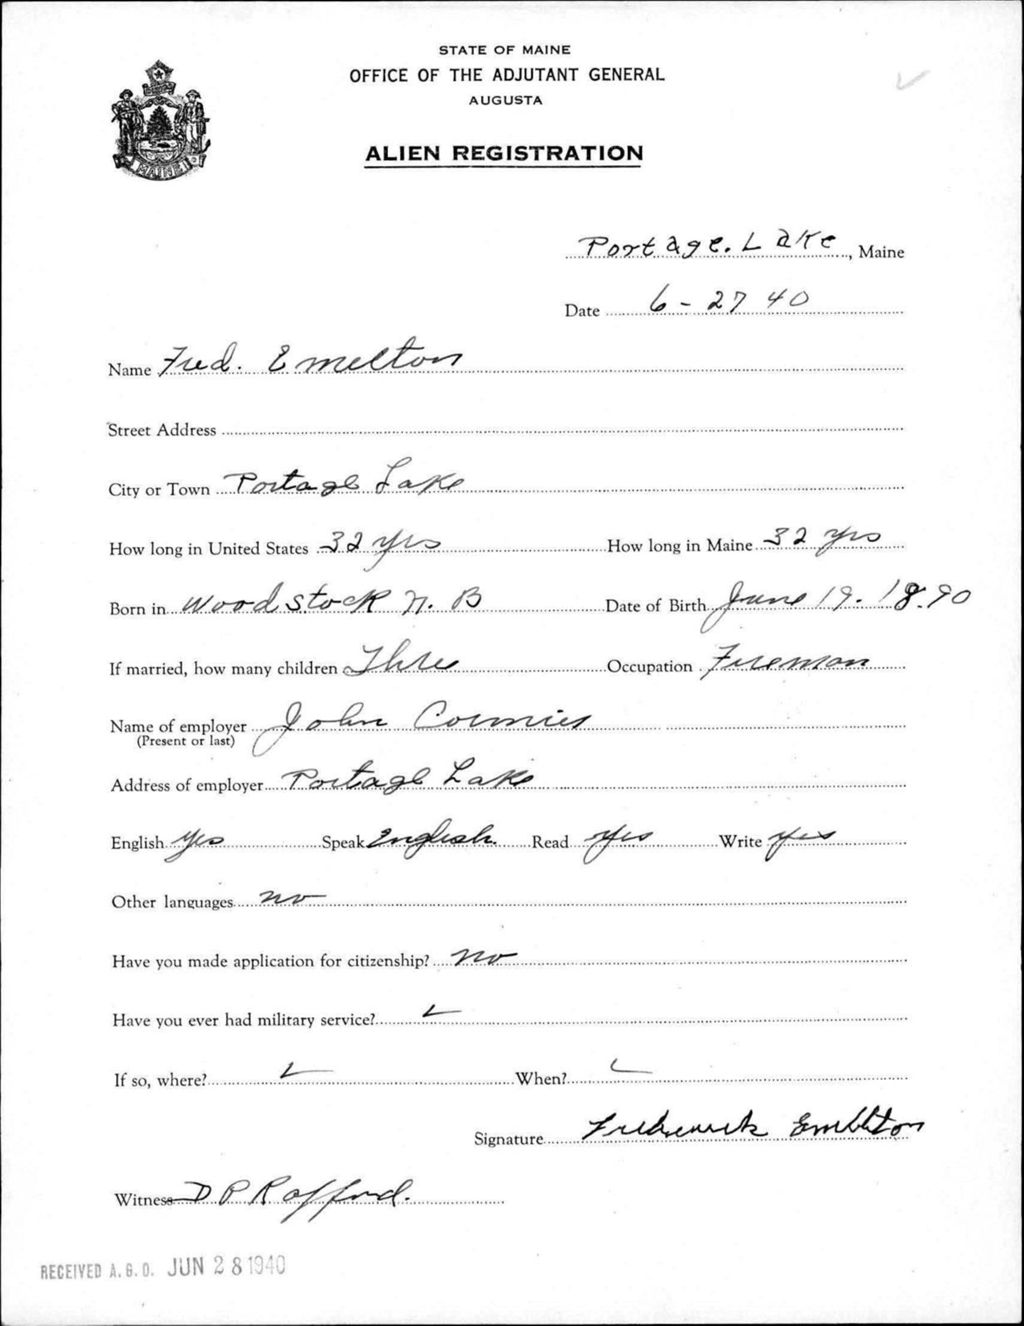 STATE OF MAINE
OFFICE OF THE ADJUTANT GENERAL
AUGUSTA
ALIEN REGISTRATION
MAINE
Portage. Lake, Maine
Date 6-27 40
Name Fred. Emelton
Street Address
City or Town Portage Lake
How long in United States 32 yrs How long in Maine 32 yrs
Born in Woodstock N. B Date of Birth June 19. 1890
If married, how many children Three Occupation Fireman
Name of employer John
(Present or last)
Address of employer Portage Lake
English Yes Speak English. Read Yes Write Yes
Other languages no
Have you made application for citizenship? No
Have you ever had military service?
If so, where? When?
Signature Frederick Embleton
Witness D P Rafford.
RECEIVED A.G.O. JUN 28 1940